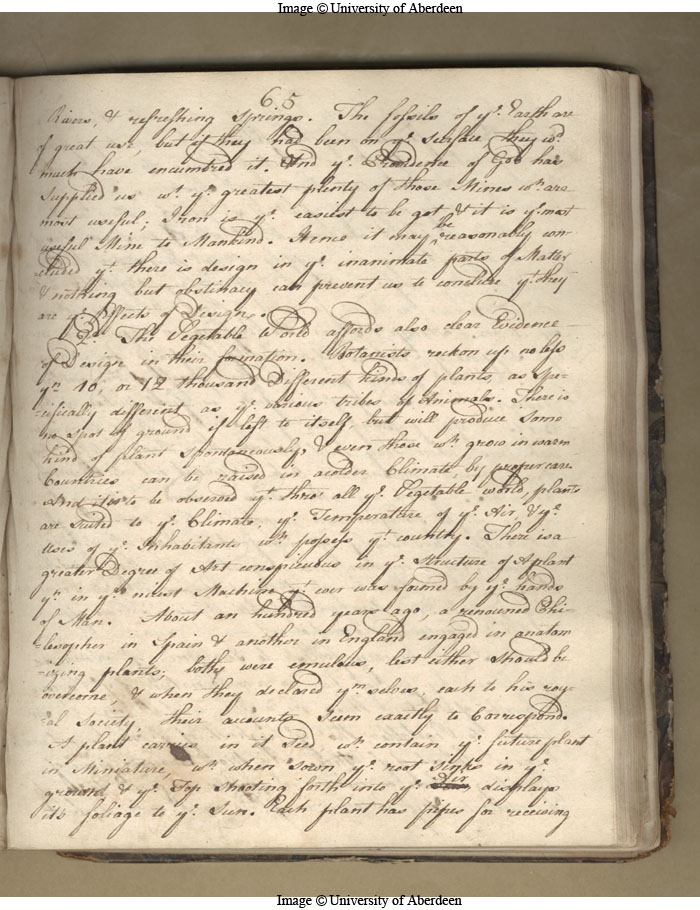 Image © University of Aberdeen
65
Rivers, & refreshing Springs. The fossils of ye. Earth are
of great use, but if they had been on ye. surface they wd.
much have encumbred it. And ye. Providence of God has
supplied us wt. ye. greatest plenty of those Mines wh. are
most useful; Iron is ye. easiest to be got & it is ye. most
useful Mine to Mankind. Hence it may be reasonably con-
cluded yt. there is design in ye. inanimate parts of Matter
& nothing but obstinacy can prevent us to conclude yt. they
are ye. Effects of Design.
2d. The Vegetable World affords also clear Evidence
of Design in their formation. Botanists reckon up no less
yn. 10, or 12 thousand Different kinds of plants, as spe-
-cifically different as ye. various tribes of Animals. There is
no spot of ground if left to itself but will produce some
kind of plant spontaneously, & even those wh. grow in warm
Countries can be raised in a colder Climate, by proper care.
And it is to be observed yt. thro' all ye. Vegetable world, plants
are suited to ye. Climate, ye. Temperature of ye. Air, & ye.
uses of ye. Inhabitants wh. possess yt. country. There is a
greater Degree of Art conspicuous in ye. Structure of a plant
yn. in ye. nicest Machine yt. ever was formed by ye. hands
of Man. About an hundred years ago, a renouned Phi-
-losopher in Spain & another in England engaged in anatom
-izing plants; both were emulous, lest either should be
overcome & when they declared ym. selves, each to his roy-
al Society, their accounts seem exactly to Correspond.
A plant carries in it seed wh. contain ye. future plant
in Miniature, wh. when sown ye. root sinks in ye.
ground & ye. Top shooting forth into ye. Air displays
its foliage to ye. Sun. Each plant has pipes for receiving
Image © University of Aberdeen